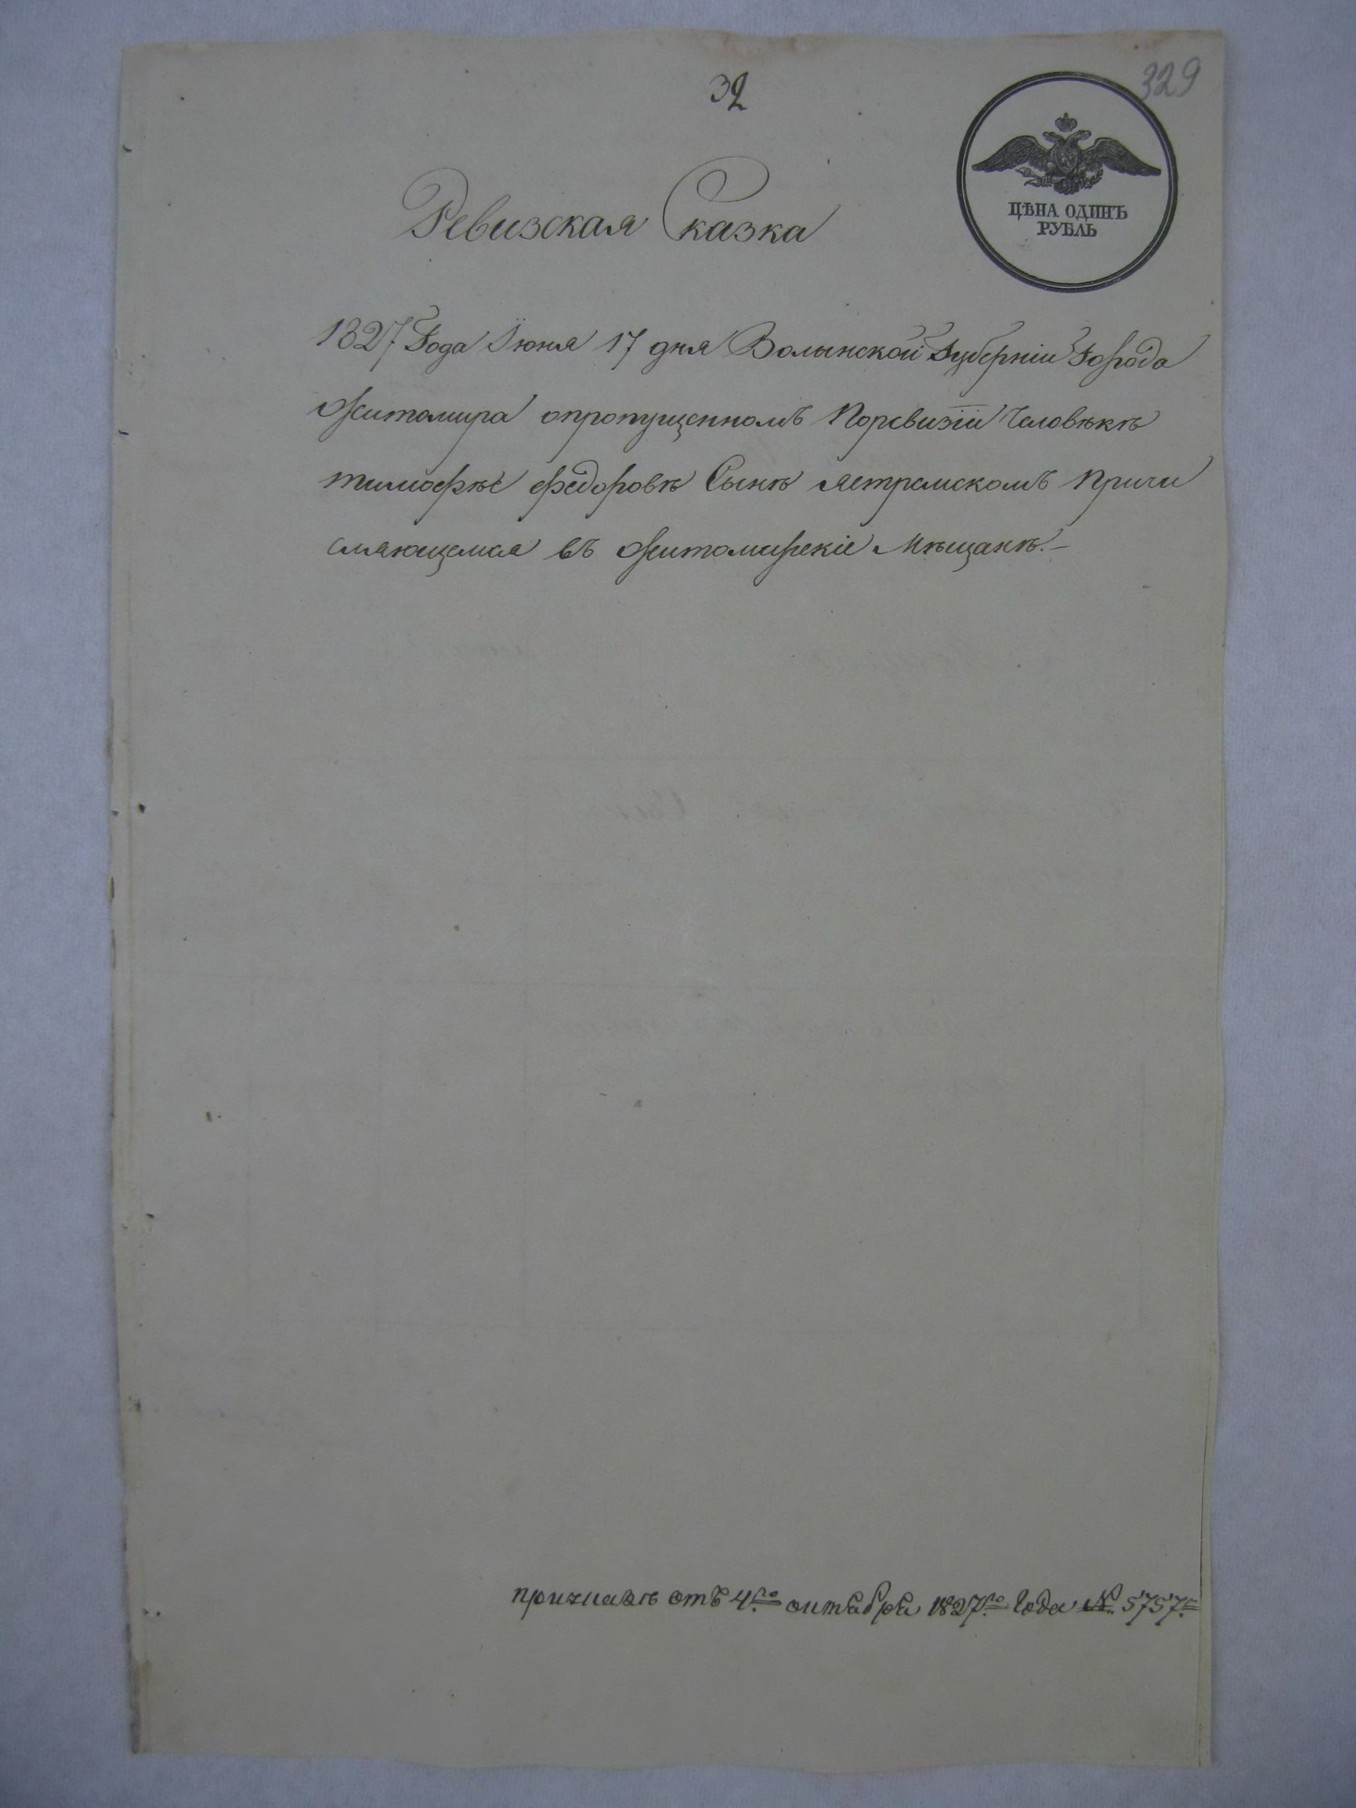 32
329
ЦѢНА ОДИНЪ
РУБЛЬ
Ревизская Сказка
1827 Года Июня 17 дня Волынской Губерніи Города
Житомира опропущенномъ Поревизіи Человѣкѣ
тимофѣе федоровѣ Сынѣ ястремскомъ Причи
сляющемся въ житомирскіе Мѣщанѣ.
причислѣ отъ 4го октября 1827го Года № 5757